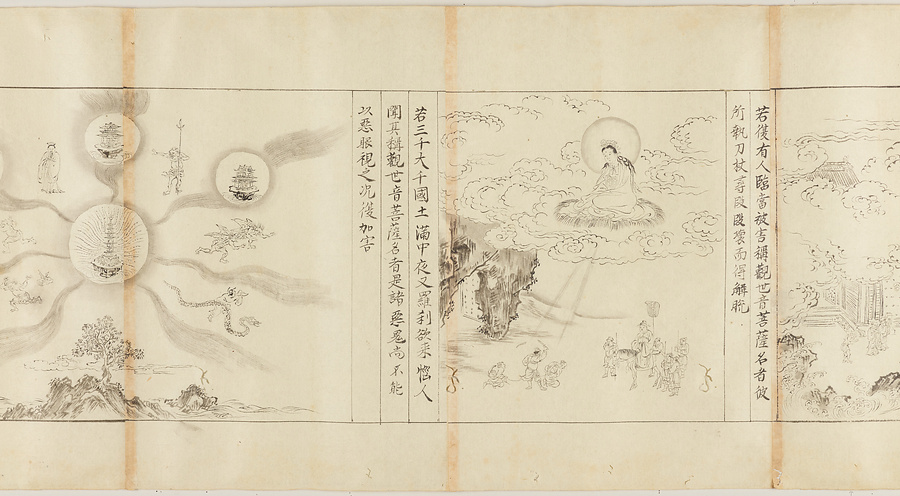 若復有人臨當被害稱觀世音菩薩名者彼
所執刀杖尋段段壞而得解脫
若三千大千國土滿中夜叉羅刹欲来惱人
聞其稱觀世音菩薩名者是諸惡鬼尚不能
以惡眼視之況復加害